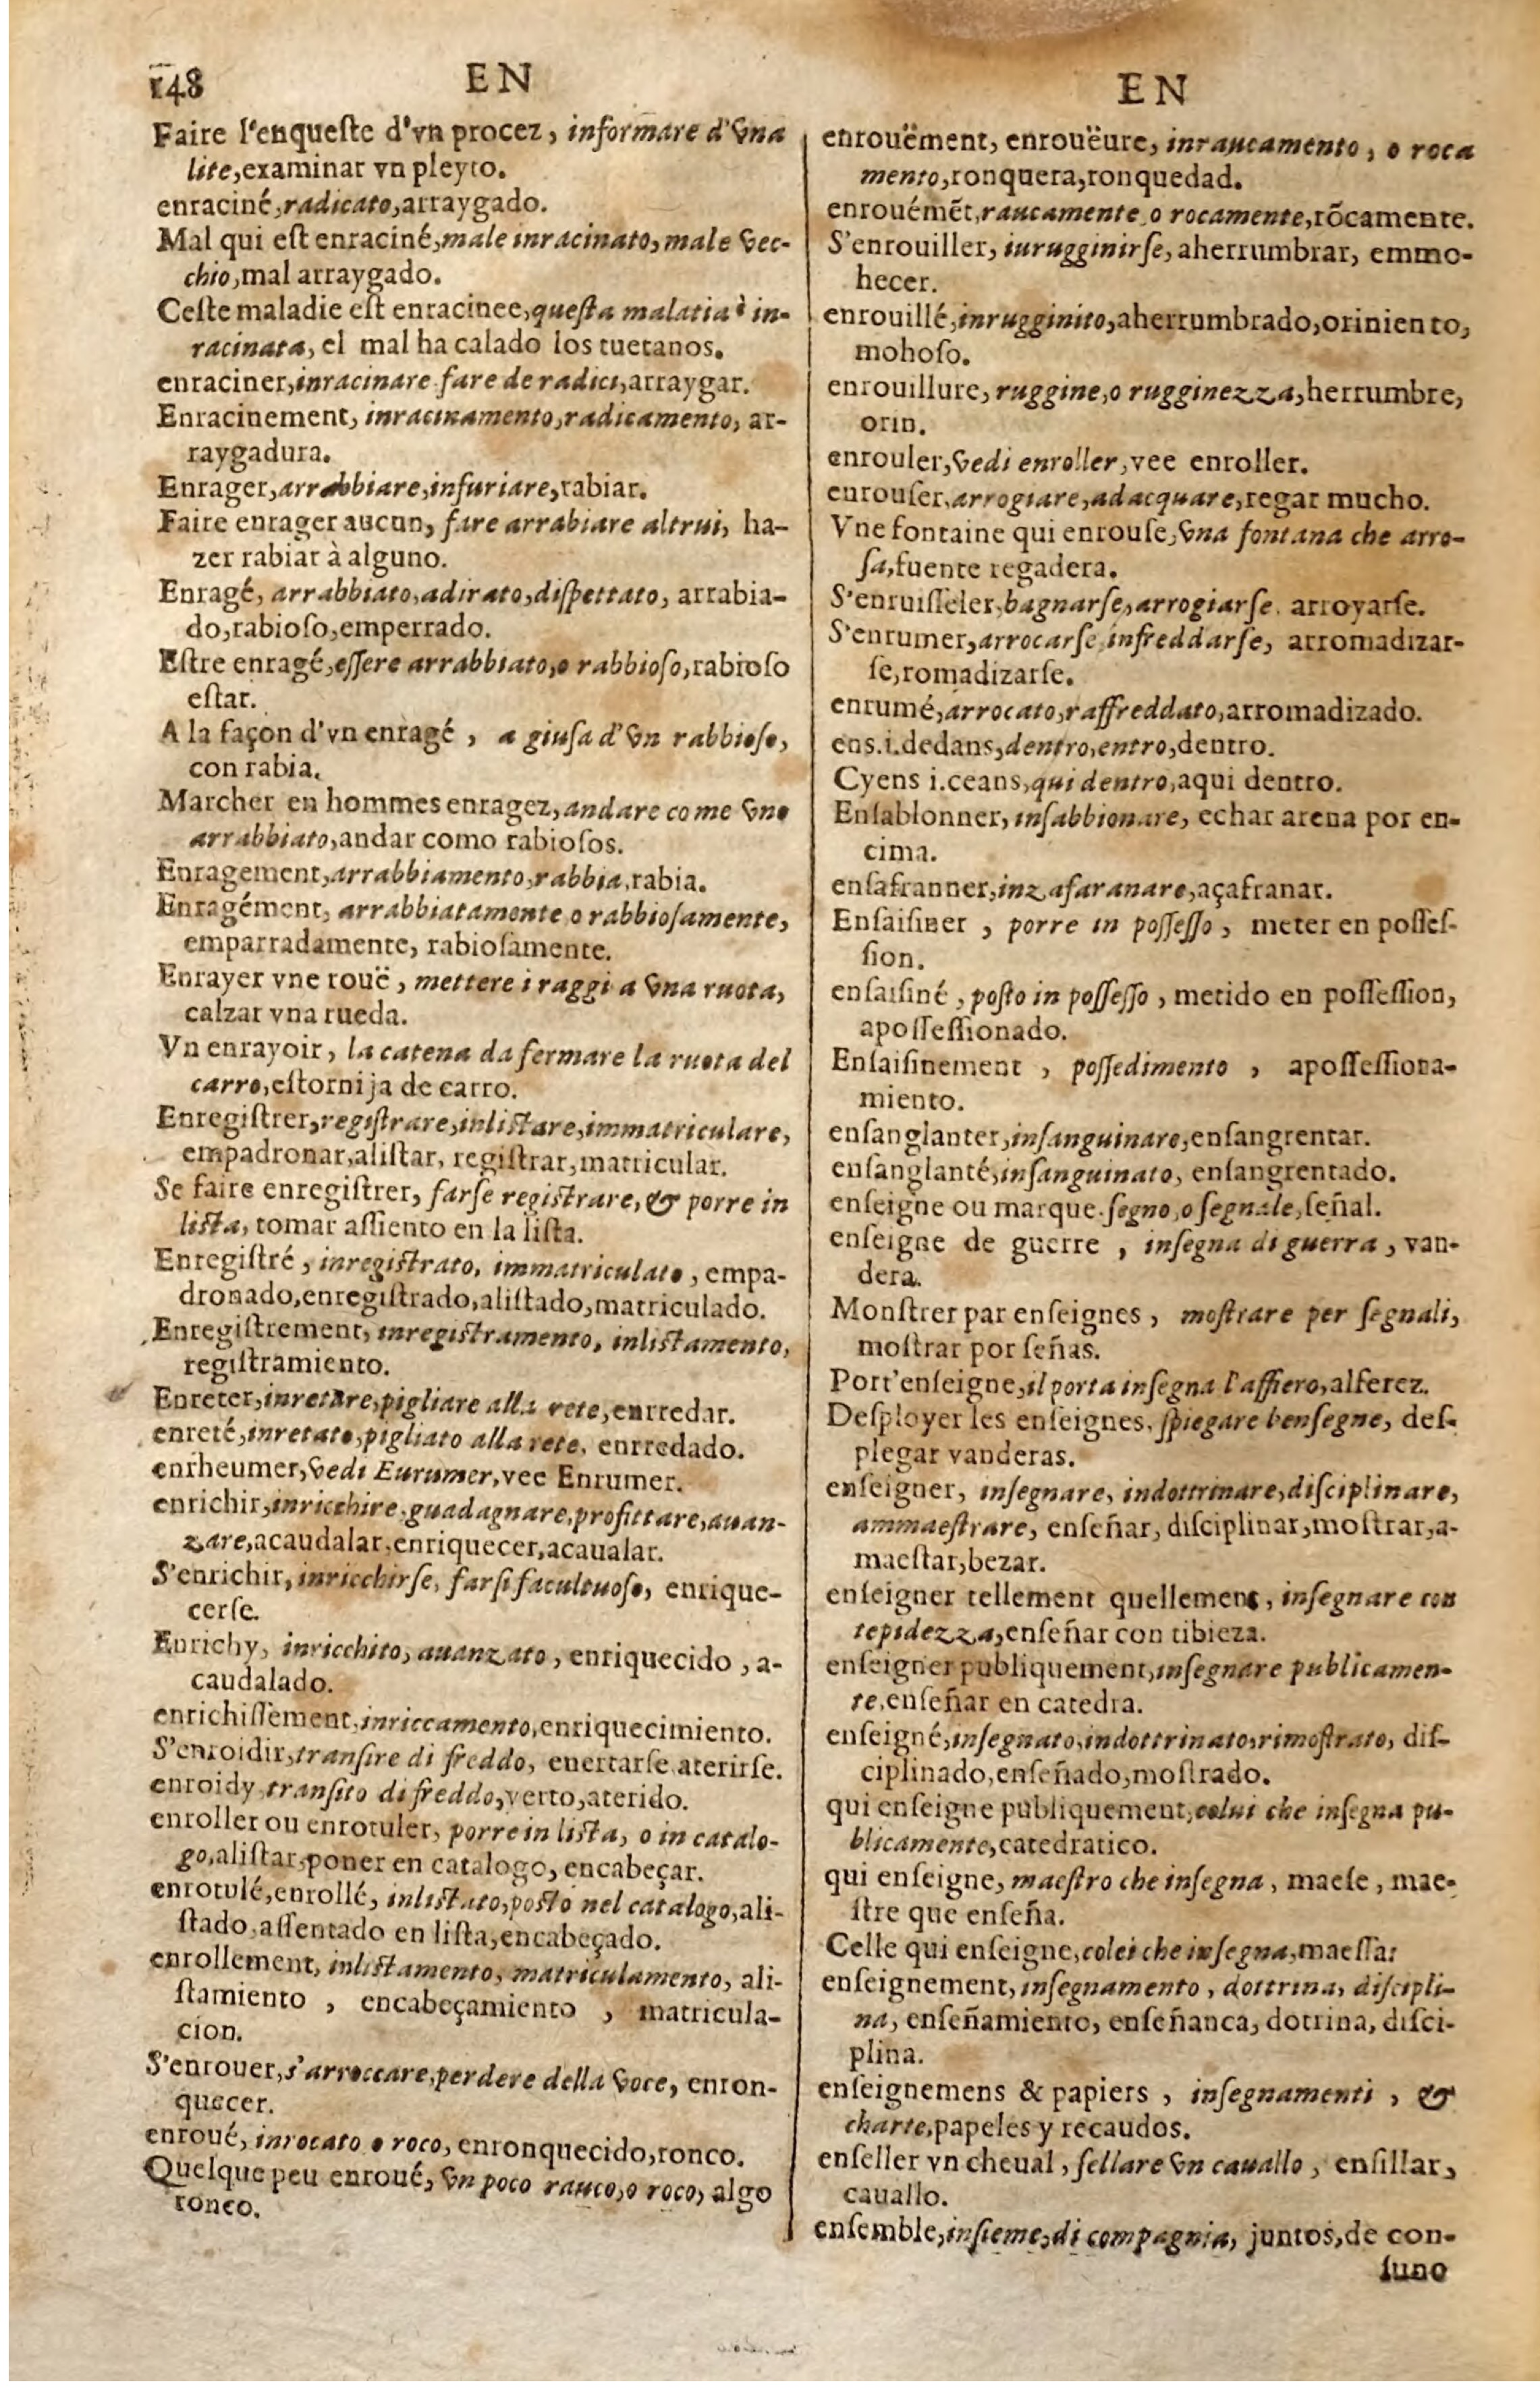 148 EN
Faire l'enqueſte d'vn procez, informare d'vna
lite,examinar vn pleyto.
enraciné,radicato,arraygado.
Mal qui eſt enraciné,male inracinato,male vec-
chio,mal arraygado.
Ceſte maladie eſt enracinee,queſta malatia è in-
racinata, el mal ha calado los tuetanos.
enraciner,inracinare fare de radici,arraygar.
Enracinement, inracinamento,radicamento, ar-
raygadura.
Enrager,arrabbiare,infuriare,rabiar.
Faire enrager aucun, fare arrabiare altrui, ha-
zer rabiar à alguno.
Enragé, arrabbiato,adirato,diſpettato, arrabia-
do,rabioſo,emperrado.
Eſtre enragé,eſſere arrabbiato,o rabbioſo,rabioſo
eſtar.
A la façon d'vn enragé , a giuſa d'vn rabbioſo,
con rabia.
Marcher en hommes enragez,andare come vno
arrabbiato,andar como rabioſos.
Enragement,arrabbiamento,rabbia,rabia.
Enragément, arrabbiatamente o rabbioſamente,
emparradamente, rabioſamente.
Enrayer vne rouë , mettere i raggi a vna ruota,
calzar vna rueda.
Vn enrayoir, la catena da fermare la ruota del
carro,eſtornija de carro.
Enregiſtrer,regiſtrare,inliſtare,immatriculare,
empadronar,aliſtar, regiſtrar,matricular.
Se faire enregiſtrer, farſe regiſtrare, & porre in
liſta, tomar aſſiento en la liſta.
Enregiſtré , inregiſtrato, immatriculato , empa-
dronado,enregiſtrado,aliſtado,matriculado.
Enregiſtrement, inregiſtramento, inliſtamento,
regiſtramiento.
Enreter,inretare,pigliare alla rete,enrredar.
enreté,inretato,pigliato alla rete, enrredado.
enrheumer,vedi Eurumer,vee Enrumer.
enrichir,inricchire,guadagnare,profittare,auan-
zare,acaudalar,enriquecer,acaualar.
S'enrichir, inricchirſe, farſi facultuoſo, enrique-
cerſe.
Enrichy, inricchito, auanzato , enriquecido , a-
caudalado.
enrichiſſement,inriccamento,enriquecimiento.
S'enroidir,tranſire di freddo, enertarſe aterirſe.
enroidy tranſito di freddo,yerto,aterido.
enroller ou enrotuler, porre in liſta, o in catalo-
go,aliſtar,poner en catalogo, encabeçar.
enrotulé,enrollé, inliſtato,poſto nel catalogo,ali-
ſtado,aſſentado en liſta,encabeçado.
enrollement, inliſtamento, matriculamento, ali-
ſtamiento , encabeçamiento , matricula-
cion.
S'enrouer,s'arroccare,perdere della voce, enron-
quecer.
enroué, inrocato o roco, enronquecido,ronco.
Quelque peu enroué, vn poco rauco,o roco, algo
ronco.
EN
enrouëment, enrouëure, inraucamento , o roca
mento,ronquera,ronquedad.
enrouémẽt,raucamente o rocamente,rõcamente.
S'enrouiller, iurugginirſe, aherrumbrar, emmo-
hecer.
enrouillé,inrugginito,aherrumbrado,oriniento,
mohoſo.
enrouillure, ruggine,o rugginezza,herrumbre,
orin.
enrouler,vedi enroller,vee enroller.
enrouſer,arrogiare,adacquare,regar mucho.
Vne fontaine qui enrouſe,vna fontana che arro-
ſa,fuente regadera.
S'enruiſſeler,bagnarſe,arrogiarſe. arroyarſe.
S'enrumer,arrocarſe,infreddarſe, arromadizar-
ſe,romadizarſe.
enrumé,arrocato,raffreddato,arromadizado.
ens.i.dedans,dentro,entro,dentro.
Cyens i.ceans,qui dentro,aqui dentro.
Enſablonner, inſabbionare, echar arena por en-
cima.
enſafranner,inzafaranare,açafranar.
Enſaiſiner , porre in poſſeſſo , meter en poſſeſ-
ſion.
enſaiſiné , poſto in poſſeſſo , metido en poſſeſſion,
apoſſeſſionado.
Enſaiſinement , poſſedimento , apoſſeſſiona-
miento.
enſanglanter,inſanguinare,enſangrentar.
enſanglanté,inſanguinato, enſangrentado.
enſeigne ou marque.ſegno,o ſegnale,ſeñal.
enſeigne de guerre , inſegna di guerra , van-
dera.
Monſtrer par enſeignes , moſtrare per ſegnali,
moſtrar por ſeñas.
Port'enſeigne,il porta inſegna l'affiero,alferez.
Deſployer les enſeignes, ſpiegare benſegne, deſ-
plegar vanderas.
enſeigner, inſegnare, indottrinare,diſciplinare,
ammaeſtrare, enſeñar, diſciplinar,moſtrar,a-
maeſtar,bezar.
enſeigner tellement quellement , inſegnare con
tepidezza,enſeñar con tibieza.
enſeigner publiquement,inſegnare publicamen-
te,enſeñar en catedra.
enſeigné,inſegnato,indottrinato,rimoſtrato, diſ-
ciplinado,enſeñado,moſtrado.
qui enſeigne publiquement,colui che inſegna pu-
blicamente,catedratico.
qui enſeigne, maeſtro che inſegna , maeſe , mae-
ſtre que enſeña.
Celle qui enſeigne,colei che inſegna,maeſſa:
enſeignement,inſegnamento , dottrina, diſcipli-
na, enſeñamiento, enſeñanca, dotrina, diſci-
plina.
enſeignemens & papiers , inſegnamenti , &
charte,papeles y recaudos.
enſeller vn cheual , ſellare vn cauallo , enſillar,
cauallo.
enſemble,inſieme,di compagnia, juntos,de con-
ſuno